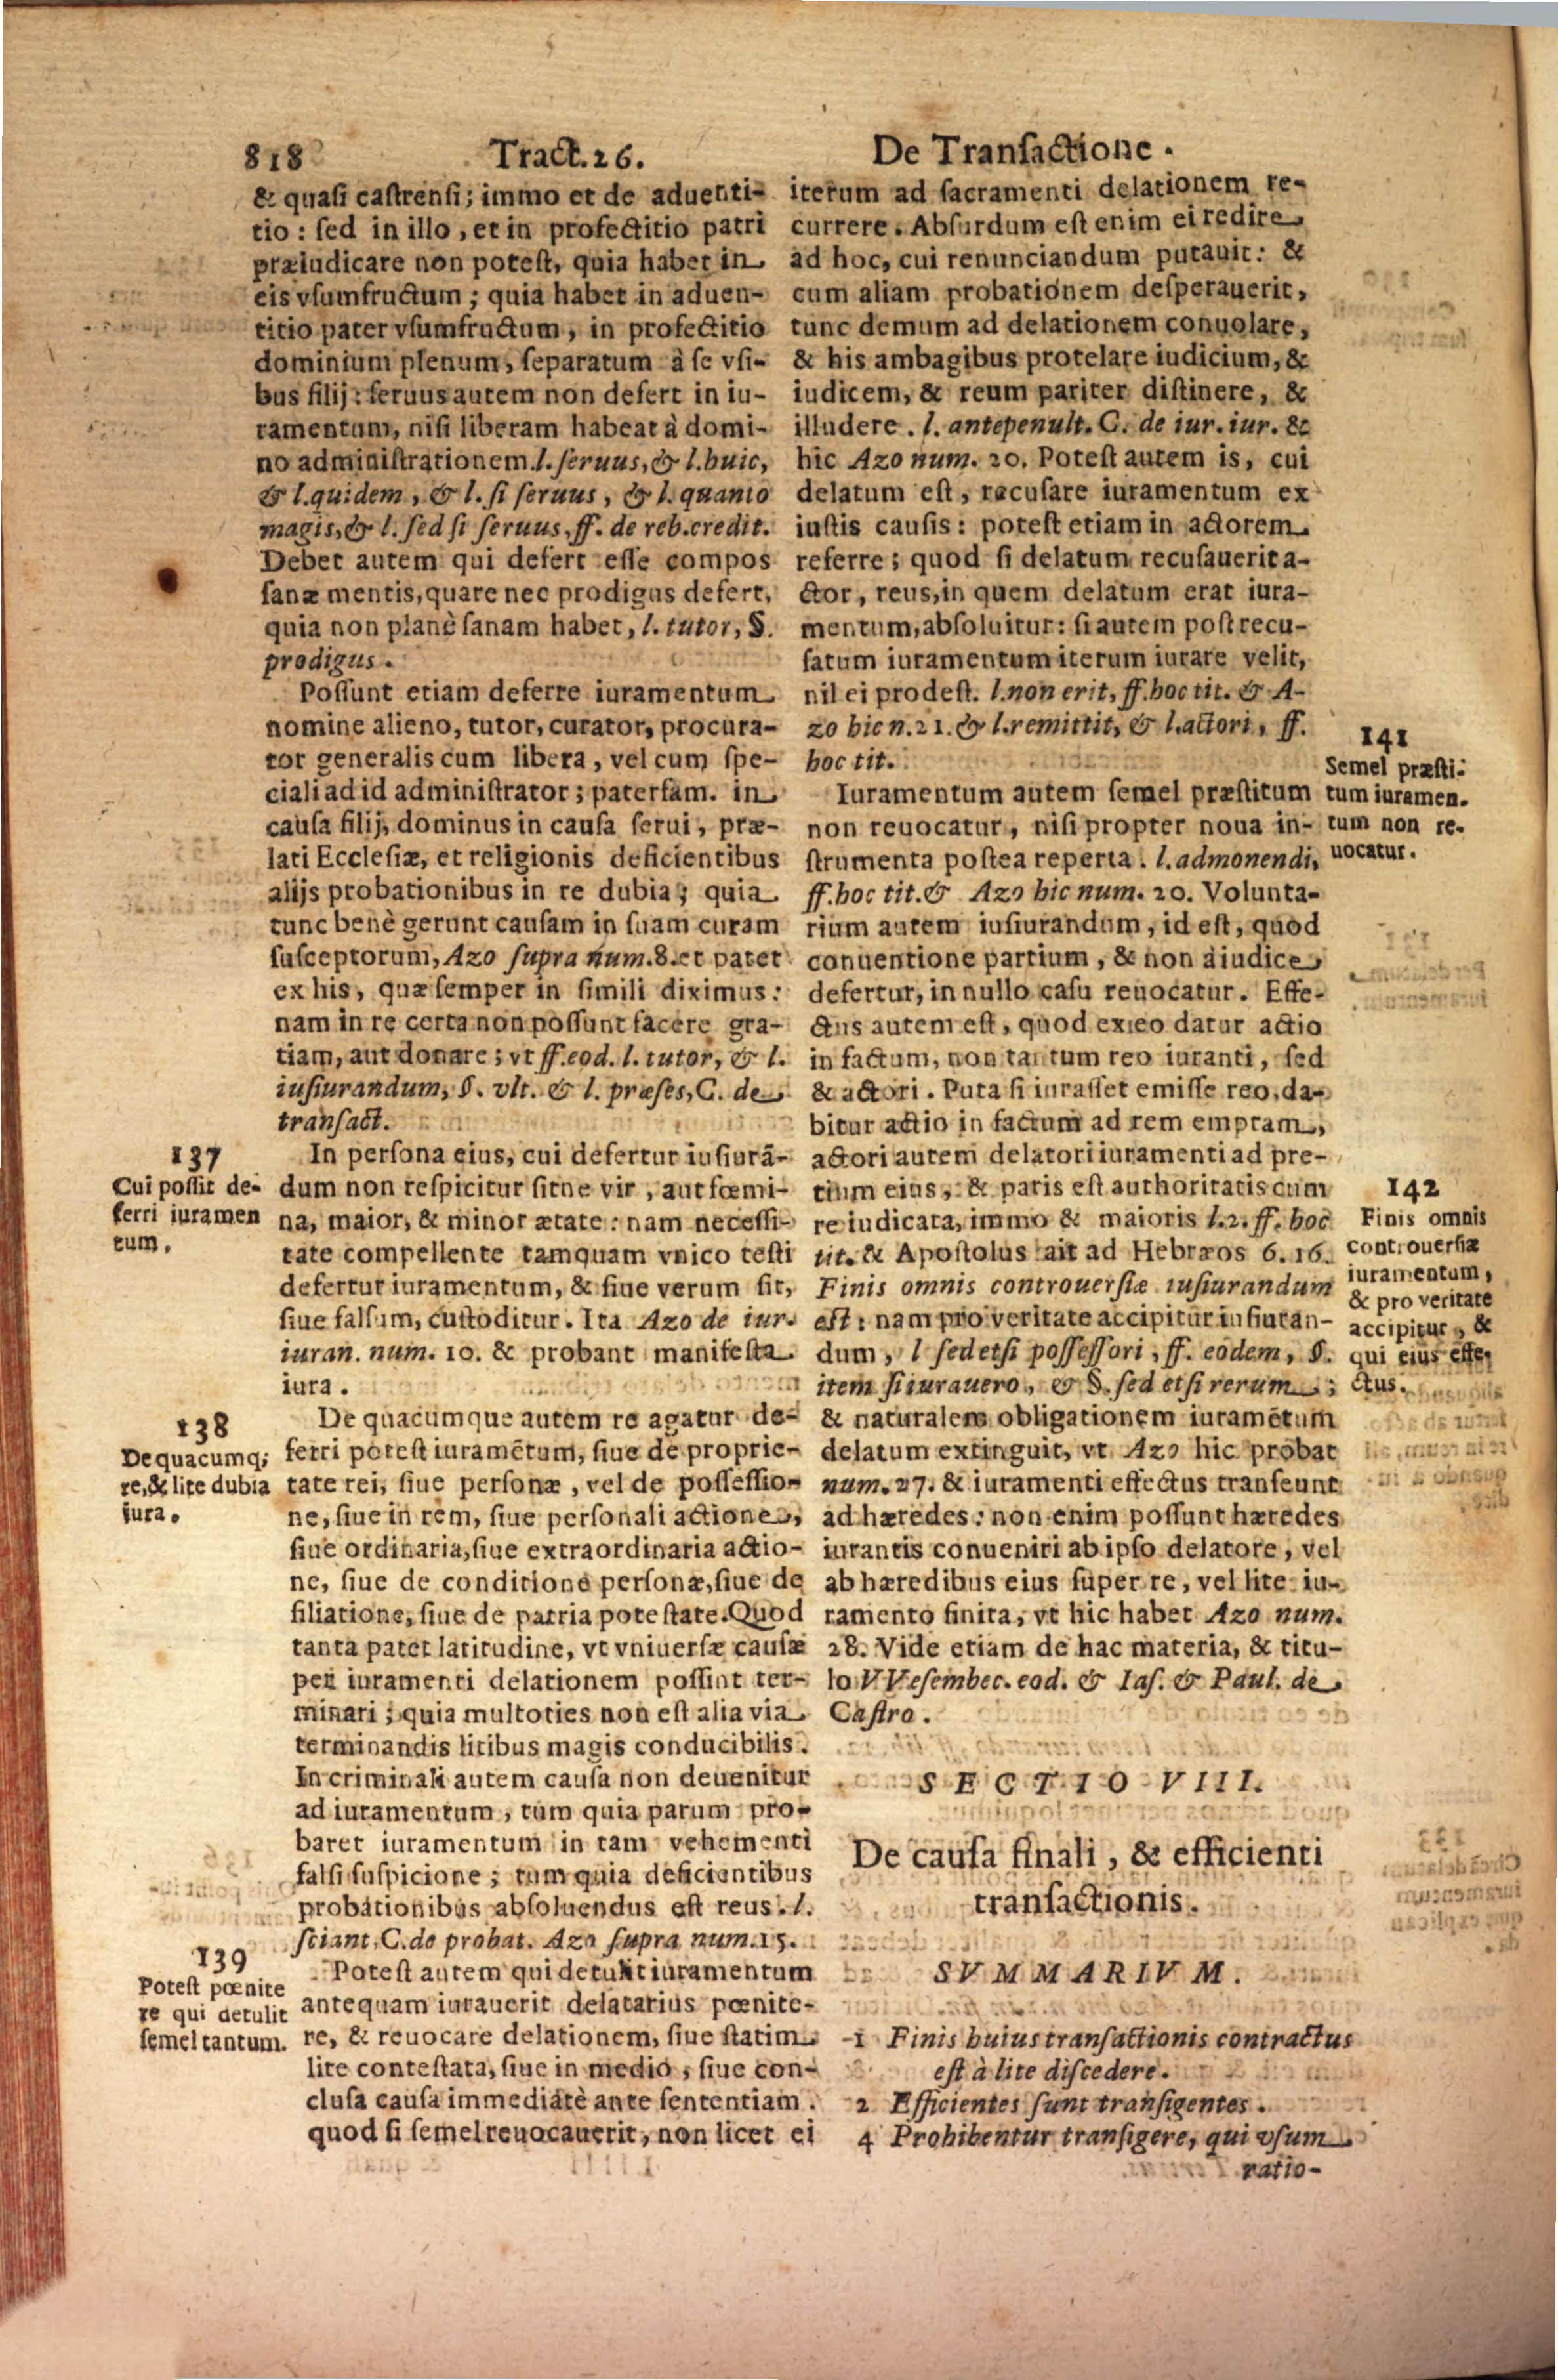 818 Tract. 26. De Transactione.
& quasi castrensi; immo et de aduenti-
tio: sed in illo, et in profectitio patri
præiudicare non potest, quia habet in
eis vsumfructum; quia habet in aduen-
titio pater vsumfructum, in profectitio
dominium plenum, separatum à se vsi-
bus filij: seruus autem non defert in iu-
ramentum, nisi liberam habeat à domi-
no administrationem. l. seruus, & l. huic,
& l. quidem, & l. si seruus, & l. quanto
magis, & l. sed si seruus, ff. de reb. credit.
Debet autem qui defert esse compos
sanæ mentis, quare nec prodigus defert,
quia non planè sanam habet, l. tutor, §.
prodigus.
Possunt etiam deferre iuramentum
nomine alieno, tutor, curator, procura-
tor generalis cum libera, vel cum spe-
ciali ad id administrator; paterfam. in
causa filij, dominus in causa serui, præ-
lati Ecclesiæ, et religionis deficientibus
alijs probationibus in re dubia; quia
tunc benè gerunt causam in suam curam
susceptorum, Azo supra num. 8. et patet
ex his, quæ semper in simili diximus:
nam in re certa non possunt facere gra-
tiam, aut donare; vt ff. eod. l. tutor, & l.
iusiurandum, §. vlt. & l. præses, C. de
transact.
137
Cui possit de-
ferri iuramen
tum.
In persona eius, cui defertur iusiurā-
dum non respicitur sitne vir, aut fœmi-
na, maior, & minor ætate: nam necessi-
tate compellente tamquam vnico testi
defertur iuramentum, & siue verum sit,
siue falsum, custoditur. Ita Azo de iur.
iuran. num. 10. & probant manifesta
iura.
138
De quacumq;
re, & lite dubia
iura.
De quacumque autem re agatur de-
ferri potest iuramētum, siue de proprie-
tate rei, siue personæ, vel de possessio-
ne, siue in rem, siue personali actione,
siue ordinaria, siue extraordinaria actio-
ne, siue de conditione personæ, siue de
filiatione, siue de patria potestate. Quod
tanta patet latitudine, vt vniuersæ causæ
per iuramenti delationem possint ter-
minari; quia multoties non est alia via
terminandis litibus magis conducibilis.
In criminali autem causa non deuenitur
ad iuramentum, tùm quia parum pro-
baret iuramentum in tam vehementi
falsi suspicione; tum quia deficientibus
probationibus absoluendus est reus. l.
sciant, C. de probat. Azo supra num. 15.
139
Potest pœnite
re qui detulit
semel tantum.
Potest autem qui detulit iuramentum
antequam iurauerit delatarius pœnite-
re, & reuocare delationem, siue statim
lite contestata, siue in medio, siue con-
clusa causa immediatè ante sententiam.
quod si semel reuocauerit, non licet ei
iterum ad sacramenti delationem re-
currere. Absurdum est enim ei redire
ad hoc, cui renunciandum putauit: &
cum aliam probationem desperauerit,
tunc demum ad delationem conuolare,
& his ambagibus protelare iudicium, &
iudicem, & reum pariter distinere, &
illudere. l. antepenult. C. de iur. iur. &
hic Azo num. 20. Potest autem is, cui
delatum est, recusare iuramentum ex
iustis causis: potest etiam in actorem
referre; quod si delatum recusauerit a-
ctor, reus, in quem delatum erat iura-
mentum, absoluitur: si autem post recu-
satum iuramentum iterum iurare velit,
nil ei prodest. l. non erit, ff. hoc tit. & A-
zo hic n. 21. & l. remittit, & l. actori, ff.
hoc tit.
141
Semel præsti-
tum iuramen.
tum non re-
uocatur.
Iuramentum autem semel præstitum
non reuocatur, nisi propter noua in-
strumenta postea reperta. l. admonendi,
ff. hoc tit. & Azo hic num. 20. Volunta-
rium autem iusiurandum, id est, quod
conuentione partium, & non à iudice
defertur, in nullo casu reuocatur. Effe-
ctus autem est, quod ex eo datur actio
in factum, non tantum reo iuranti, sed
& actori. Puta si iurasset emisse reo, da-
bitur actio in factum ad rem emptam,
actori autem delatori iuramenti ad pre-
tium eius, & paris est authoritatis cum
re iudicata, immo & maioris l. 2. ff. hoc
tit. & Apostolus ait ad Hebræos 6. 16.
Finis omnis controuersiæ iusiurandum
est: nam pro veritate accipitur iusiuran-
dum, l sed etsi possessori, ff. eodem, §.
item si iurauero, & §. sed etsi rerum;
& naturalem obligationem iuramētum
delatum extinguit, vt Azo hic probat
num. 27. & iuramenti effectus transeunt
ad hæredes: non enim possunt hæredes
iurantis conueniri ab ipso delatore, vel
ab hæredibus eius super re, vel lite iu-
ramento finita, vt hic habet Azo num.
28. Vide etiam de hac materia, & titu-
lo VVesembec. eod. & Ias. & Paul. de
Castro.
142
Finis omnis
controuersiæ
iuramentum,
& pro veritate
accipitur, &
qui eius effe-
ctus.
SECTIO VIII.
De causa finali, & efficienti
transactionis.
SVMMARIVM.
1 Finis huius transactionis contractus
est à lite discedere.
2 Efficientes sunt transigentes.
4 Prohibentur transigere, qui vsum
ratio-